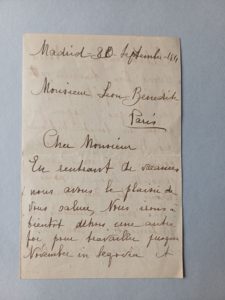 Madrid 30 Septembre
Monsieur Leon Benedite
Paris
Cher Monsieur
En rentrant de vacances
nous avons le plaisir de
vous saluer, Nous irons
bientôt dehors une autre
foi pour travailler jusque
Novembre in Segovia